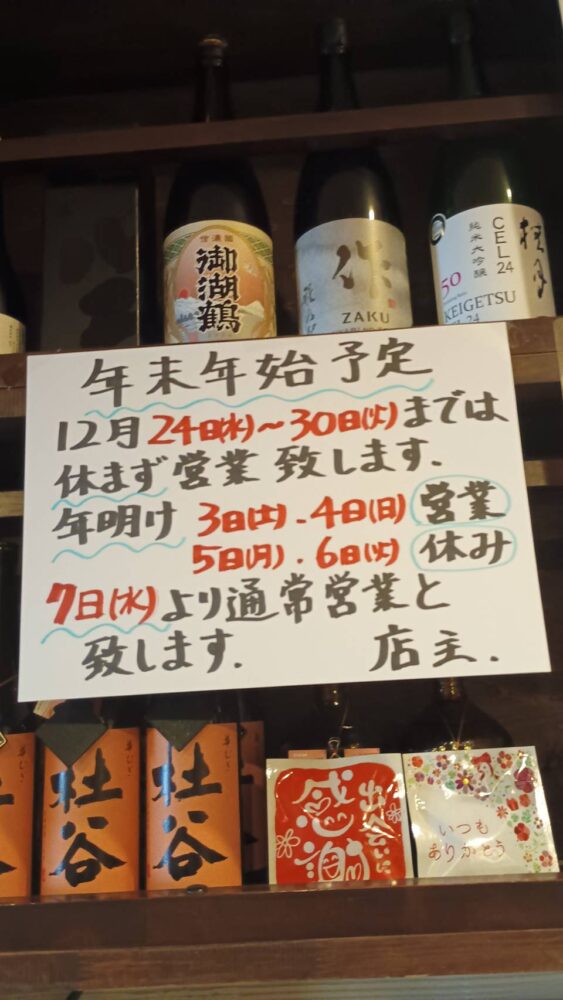 信濃國
御湖鶴
作
ZAKU
純米大吟醸
CEL24
50
KEIGETSU
CEL 24
桂月
年末年始予定
12月24日(水)~30日(火)までは
休まず営業致します.
年明け 3日(土).4日(日)営業
5日(月).6日(火)休み
7日(水)より通常営業と
致します. 店主.
杜谷
杜谷
出会いに
感謝
いつも
ありがとう